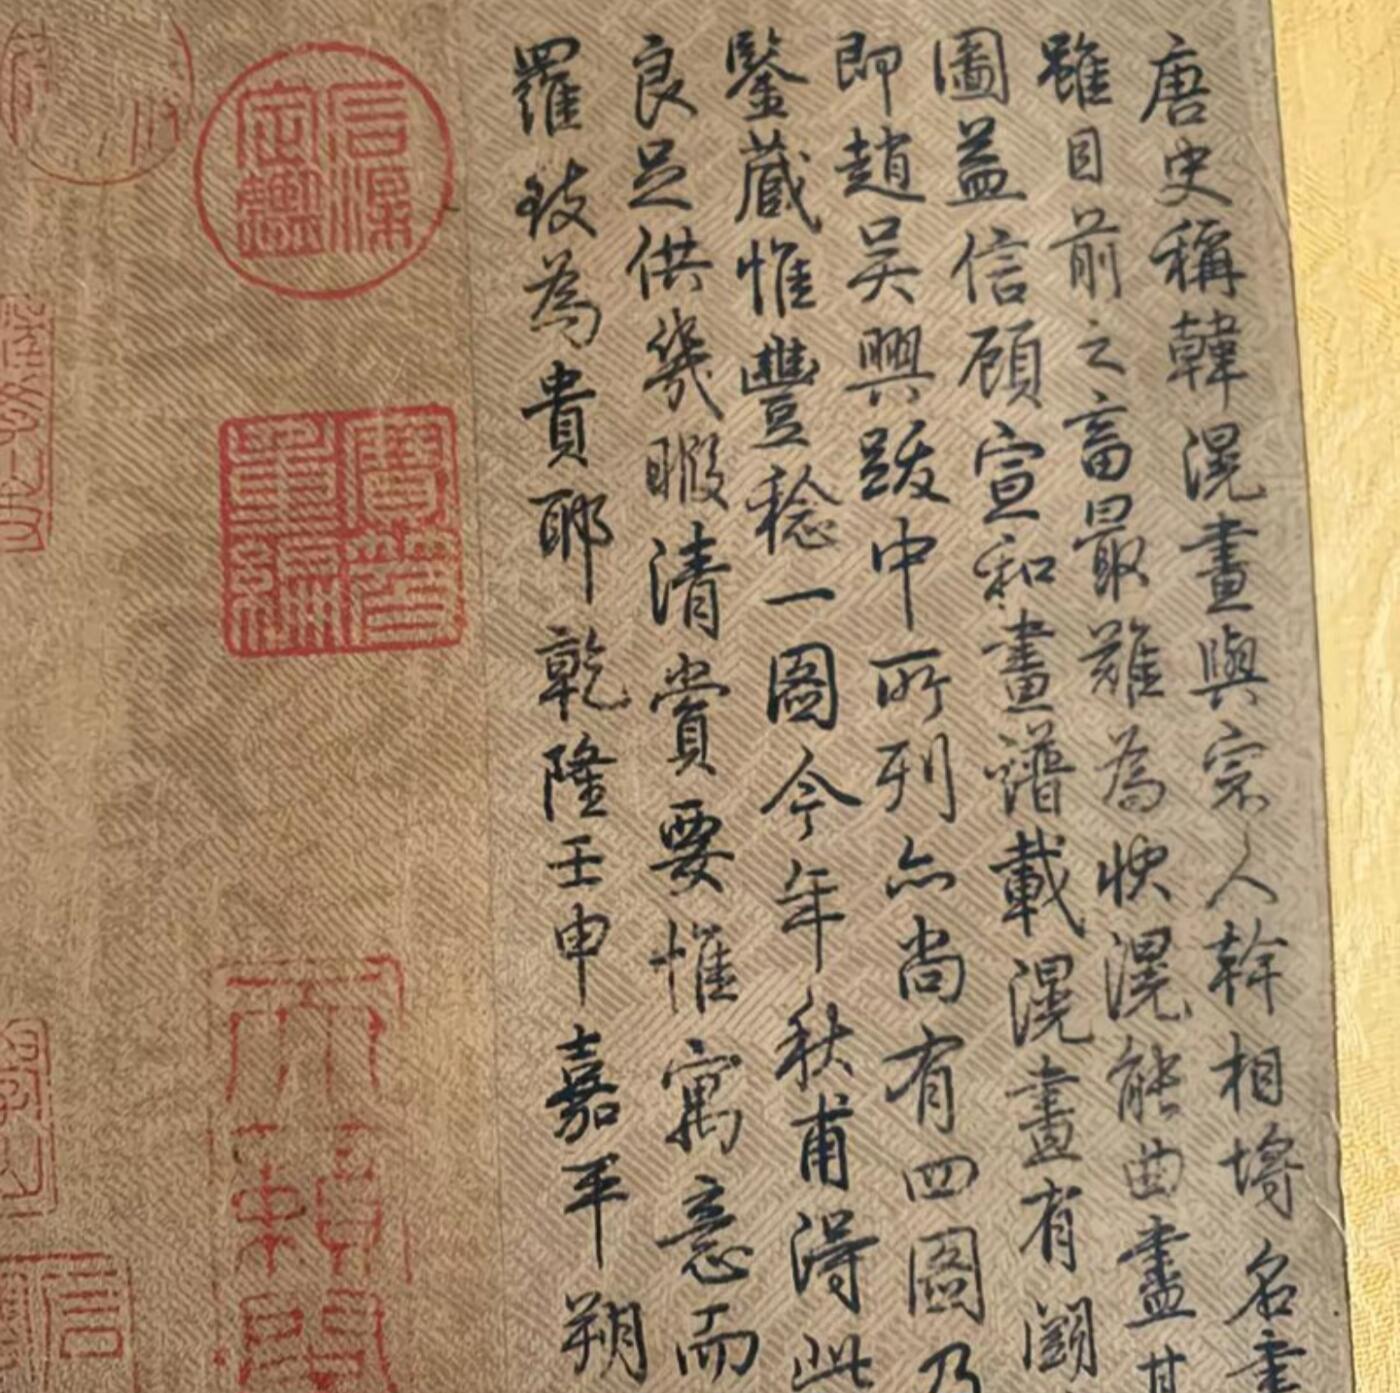 唐史稱韓滉畫與宗人幹相埒名畫
雖目前之畜最難為快滉能曲盡其
圖益信顧宣和畫譜載滉畫有闕
即趙吳興跋中所列亦尚有四圖乃
鑒藏惟豐稔一圖今年秋甫得此
良足供幾暇清賞要惟寓意而
羅致為貴耶乾隆壬申嘉平朔
石渠
定鑑
寶笈
重編